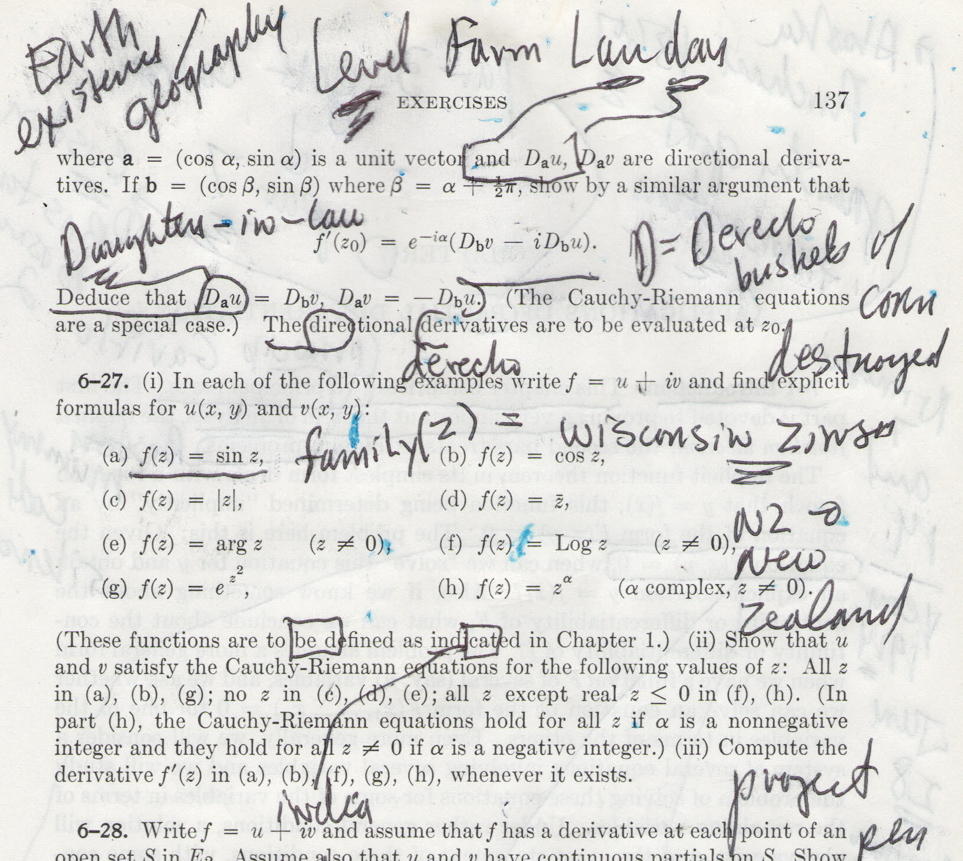 Earth
existence
geography
Level Farm Landay
EXERCISES 137
where a = (cos α, sin α) is a unit vector and Dₐu, Dₐv are directional deriva-
tives. If b = (cos β, sin β) where β = α + ½π, show by a similar argument that
Daughters-in-law
f′(z₀) = e^{−iα}(D_b v − iD_b u).
D = Derecho
bushels of
corn
destroyed
Deduce that Dₐu = D_b v, Dₐv = −D_b u. (The Cauchy-Riemann equations
are a special case.) The directional derivatives are to be evaluated at z₀.
derecho
6–27. (i) In each of the following examples write f = u + iv and find explicit
formulas for u(x, y) and v(x, y):
family(z) = Wisconsin Zinson
(a) f(z) = sin z, (b) f(z) = cos z,
(c) f(z) = |z|, (d) f(z) = z̄,
NZ
New
Zealand
(e) f(z) = arg z (z ≠ 0), (f) f(z) = Log z (z ≠ 0),
(g) f(z) = e^{z²}, (h) f(z) = z^α (α complex, z ≠ 0).
(These functions are to be defined as indicated in Chapter 1.) (ii) Show that u
and v satisfy the Cauchy-Riemann equations for the following values of z: All z
in (a), (b), (g); no z in (c), (d), (e); all z except real z ≤ 0 in (f), (h). (In
part (h), the Cauchy-Riemann equations hold for all z if α is a nonnegative
integer and they hold for all z ≠ 0 if α is a negative integer.) (iii) Compute the
derivative f′(z) in (a), (b), (f), (g), (h), whenever it exists.
project
pen
6–28. Write f = u + iv and assume that f has a derivative at each point of an
open set S in E₂. Assume also that u and v have continuous partials on S. Show